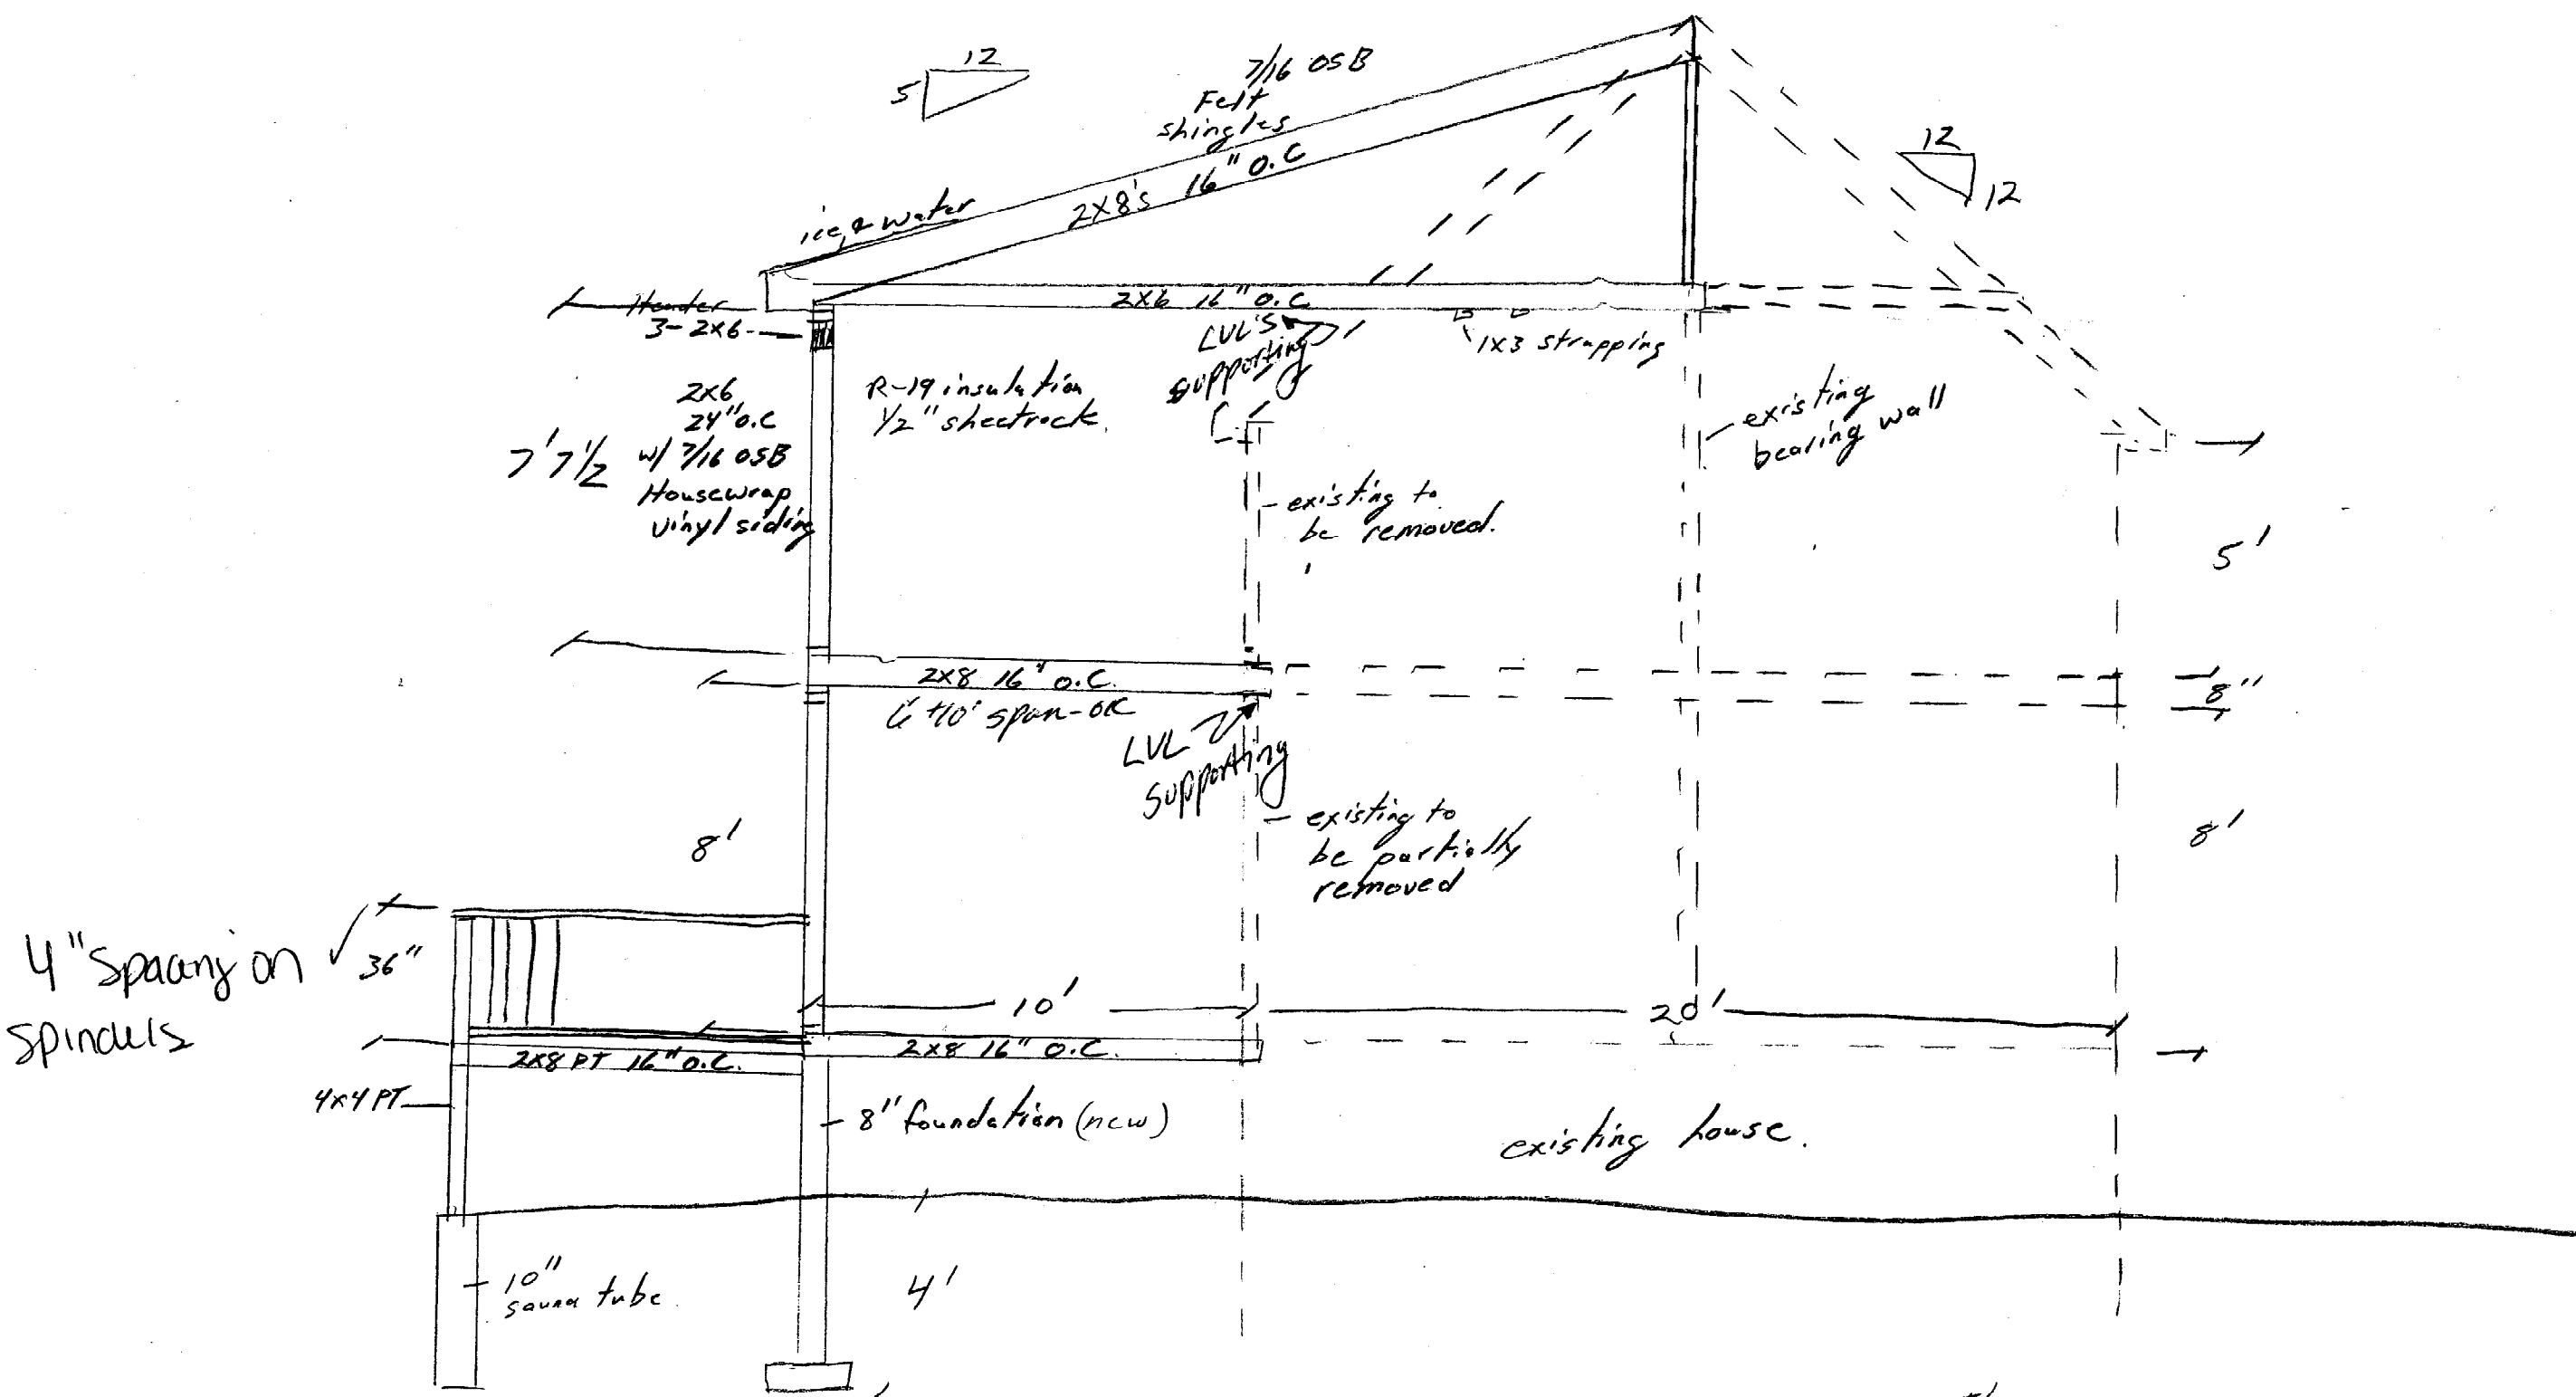 12
5
7/16 OSB
Felt
shingles
2x8's 16" O.C
ice & water
12
12
Header
3-2x6
2x6 16" O.C
LVL'S
supporting
1x3 strapping
2x6
24" O.C
w/ 7/16 OSB
Housewrap
vinyl siding
7' 7 1/2
R-19 insulation
1/2" sheetrock
existing
bearing wall
existing to
be removed.
5'
2x8 16" O.C.
10' span-OK
8"
LVL
supporting
existing to
be partially
removed
8'
8'
4" Spacing on
Spindels
36"
10'
20'
2x8 PT 16" O.C.
2x8 16" O.C.
4x4 PT
8" foundation (new)
existing house.
10"
sauna tube
4'